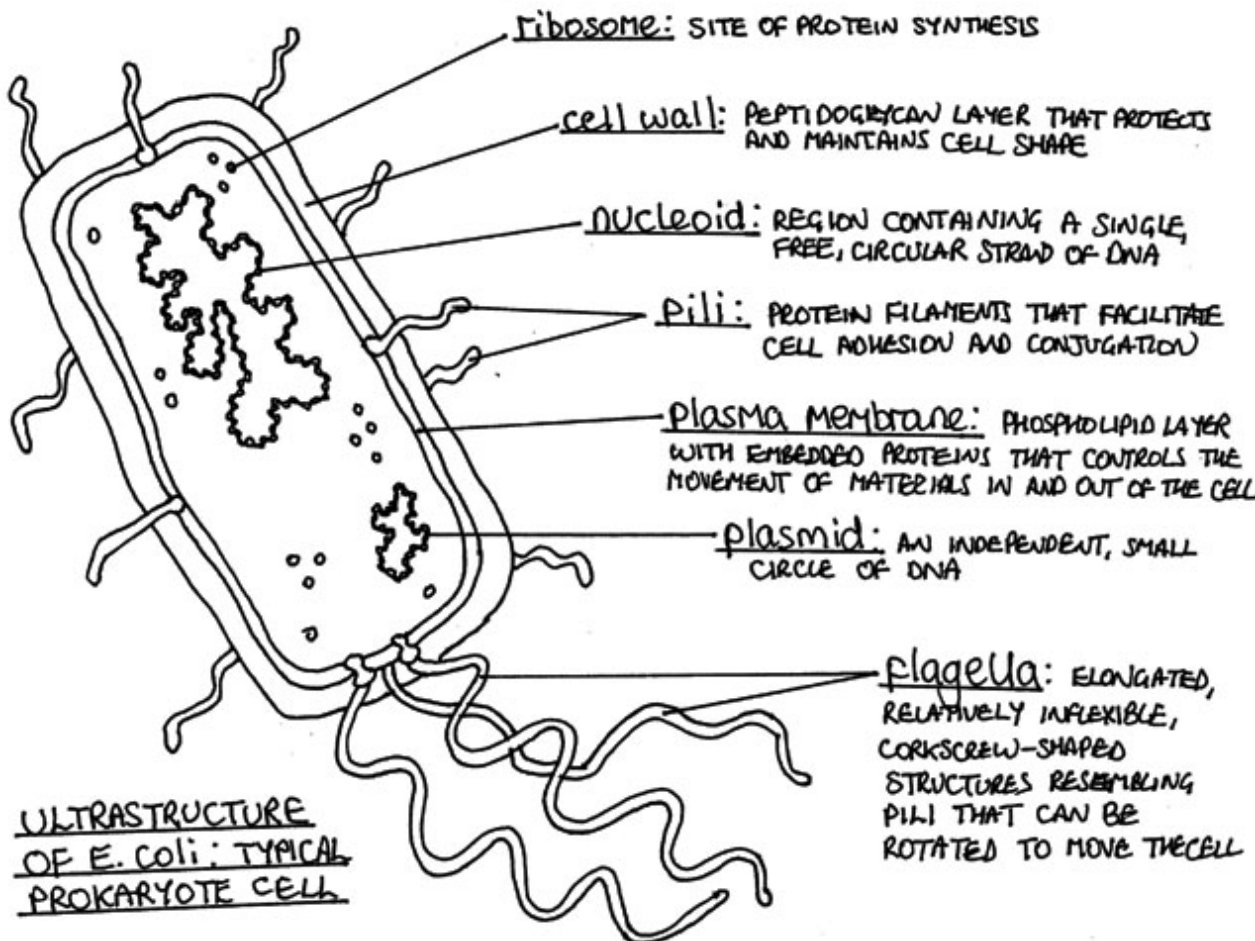 ribosome: SITE OF PROTEIN SYNTHESIS
cell wall: PEPTIDOGLYCAN LAYER THAT PROTECTS
AND MAINTAINS CELL SHAPE
nucleoid: REGION CONTAINING A SINGLE,
FREE, CIRCULAR STRAND OF DNA
pili: PROTEIN FILAMENTS THAT FACILITATE
CELL ADHESION AND CONJUGATION
plasma membrane: PHOSPHOLIPID LAYER
WITH EMBEDDED PROTEINS THAT CONTROLS THE
MOVEMENT OF MATERIALS IN AND OUT OF THE CELL
plasmid: AN INDEPENDENT, SMALL
CIRCLE OF DNA
flagella: ELONGATED,
RELATIVELY INFLEXIBLE,
CORKSCREW-SHAPED
STRUCTURES RESEMBLING
PILI THAT CAN BE
ROTATED TO MOVE THE CELL
ULTRASTRUCTURE
OF E. Coli: TYPICAL
PROKARYOTE CELL